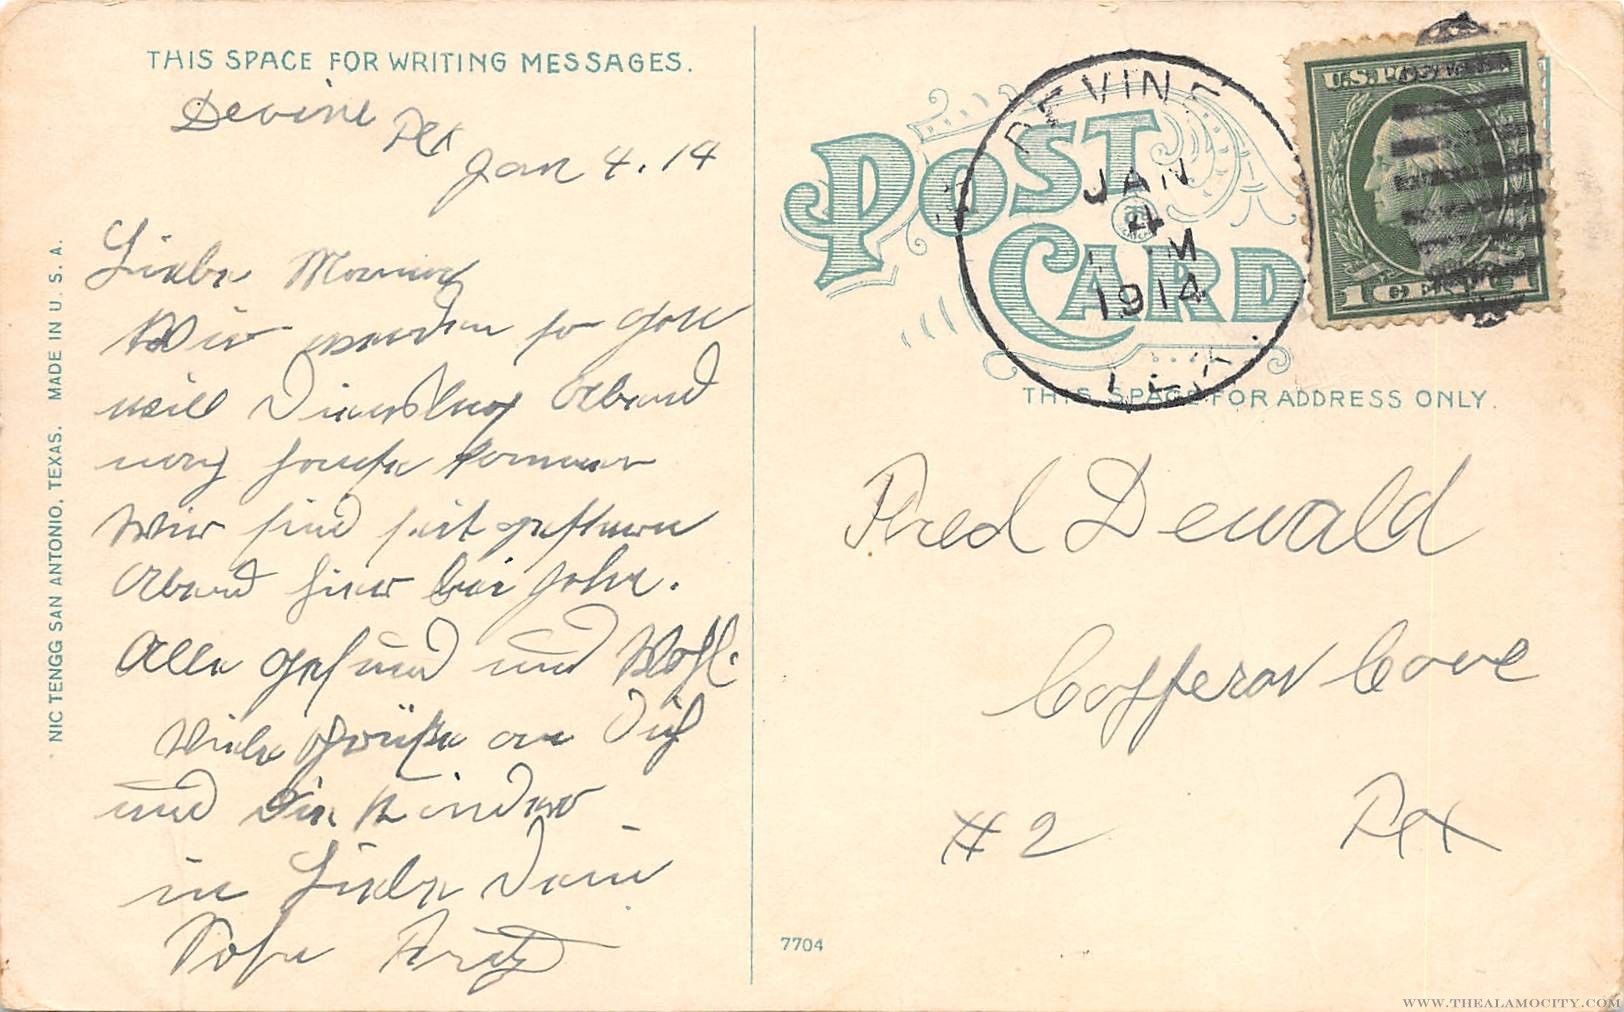 THIS SPACE FOR WRITING MESSAGES.
Devine Tex
Jan 4. 14
Liebe Mamma
Wir werden so Gott
will Dienstag Abend
nach Hause kommen
Wir sind seit gestern
Abend hier bei John.
Alle gesund und Wohl.
Viele Grüße an Dich
und die Kinder
in Liebe Dein
Sohn Fritz
NIC TENGG SAN ANTONIO, TEXAS. MADE IN U. S. A.
POST CARD
THIS SPACE FOR ADDRESS ONLY.
DEVINE
JAN
4
M
1914
TEX.
U.S. POSTAGE
1 CENT 1
Fred Dewald
Copperas Cove
#2 Tex
7704
WWW.THEALAMOCITY.COM